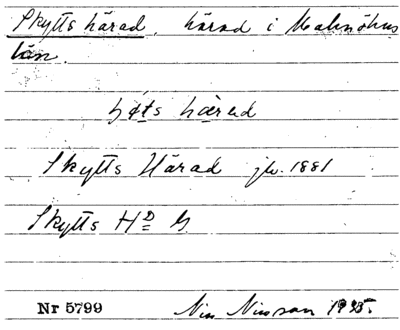 Skytts härad, härad i Malmöhus
län.
härad
Skytts Härad jb. 1881
Skytts HD G
Nr 5799 Nils Nilsson 1925.